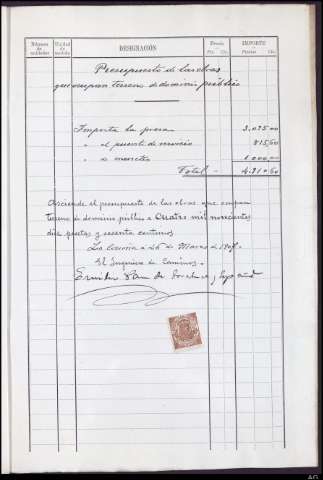 Número de unidades
Unidad de medida
DESIGNACIÓN
Precio
Pts. Cts.
IMPORTE
Pesetas Cts.
Presupuesto de las obras
que ocupan terreno de dominio público
Importa la presa 3.095,00
" el puente de servicio 815,60
" 1.000,00
Total - 4.910,60
Asciende el presupuesto de las obras que ocupan
terreno de dominio público a Cuatro mil novecientos
diez pesetas y sesenta centimos
La Coruña a 26 de Marzo de 1907
El Ingeniero de Caminos.
Emilio Pan de